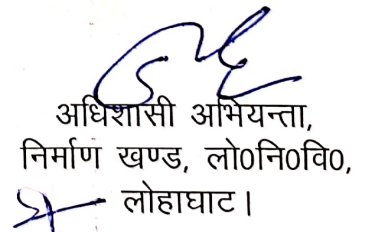 अधिशासी अभियन्ता,
निर्माण खण्ड, लो०नि०वि०,
लोहाघाट।